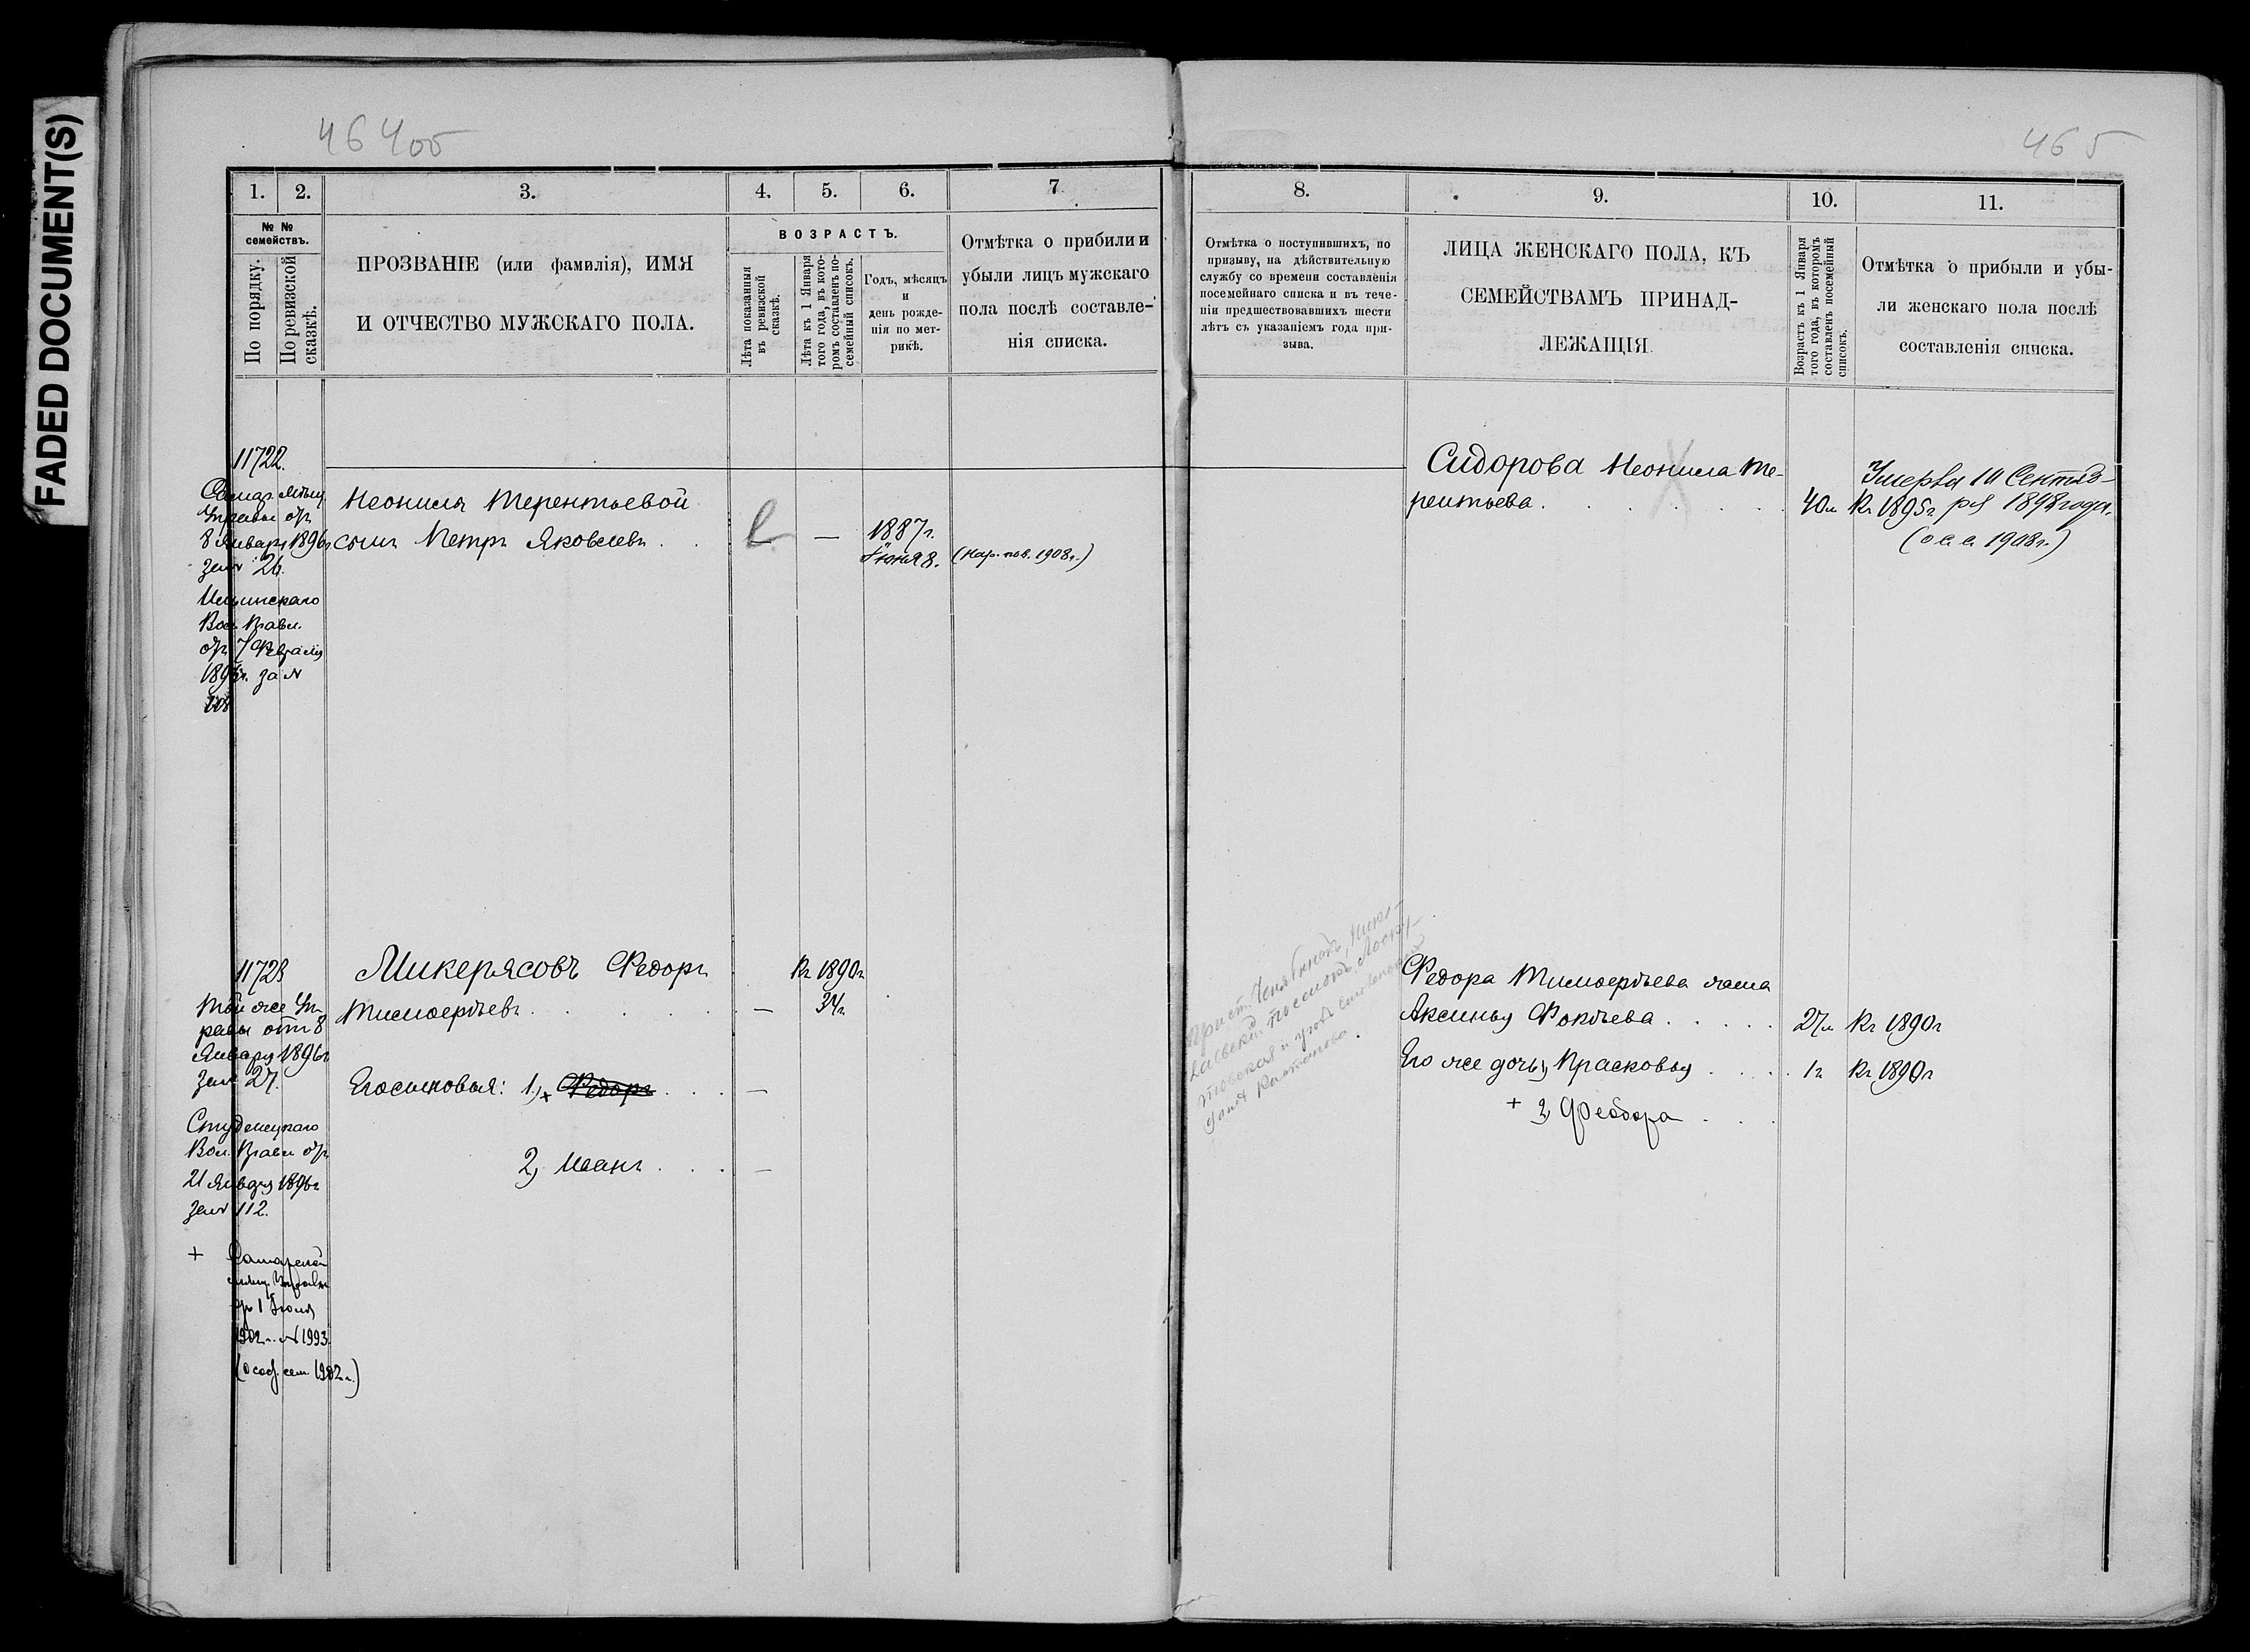 FADED DOCUMENT(S)
464об
465
1.
2.
3.
4.
5.
6.
7
8.
9.
10.
11.
№ №
семействъ.
По порядку.
По ревизской
сказкѣ.
ПРОЗВАНІЕ (или фамилія), ИМЯ
И ОТЧЕСТВО МУЖСКАГО ПОЛА.
ВОЗРАСТЪ.
Лѣта показанныя
въ ревизской
сказкѣ.
Лѣта къ 1 Января
того года, въ кото-
ромъ составленъ по-
семейный списокъ.
Годъ, мѣсяцъ
и
день рожде-
нія по мет-
рикѣ.
Отмѣтка о прибыли и
убыли лицъ мужскаго
пола послѣ составле-
нія списка.
Отмѣтка о поступившихъ, по
призыву, на дѣйствительную
службу со времени составленія
посемейнаго списка и въ тече-
ніи предшествовавшихъ шести
лѣтъ съ указаніемъ года при-
зыва.
ЛИЦА ЖЕНСКАГО ПОЛА, КЪ
СЕМЕЙСТВАМЪ ПРИНАД-
ЛЕЖАЩІЯ
Возрастъ къ 1 Января
того года, въ которомъ
составленъ посемейный
списокъ.
Отмѣтка о прибыли и убы-
ли женскаго пола послѣ
составленія списка.
11722.
Самар. мѣщ.
Управы отъ
8 Января 1896г
за № 26.
Вол. Правл.
отъ 7 Февраля
за №
Неонилы Терентьевой
сынъ Петръ Яковлевъ . .
—
1887г.
Іюня 8.
(Нар. пов. 1908г.)
Сидорова Неонила Те-
рентьева . . . . . .
40л
Къ 1895г.
Умерла 10 Сентяб-
ря 1898 года.
(о с. с. 1908г.)
11723
Той же Уп-
равы отъ 8
Января 1896г
за № 27.
Студенецкаго
Вол. Правл. отъ
21 Января 1896г
за № 112.
+ Самарской
мѣщ. Управы
отъ 1 Іюня
1902г. № 1993.
(особ. сем. 1902г.)
Микерясовъ Федоръ
Тимофеевъ . . . . .
—
Къ 1890г
34г
Его сыновья: 1, + Федоръ . . .
—
2, Иванъ . . .
—
Федора Тимофеева жена
Аксинья Фокеева . . . . .
27л
Къ 1890г
Его же дочь 1, Прасковья . . . .
1г
Къ 1890г
+ 2, Феодора . . .